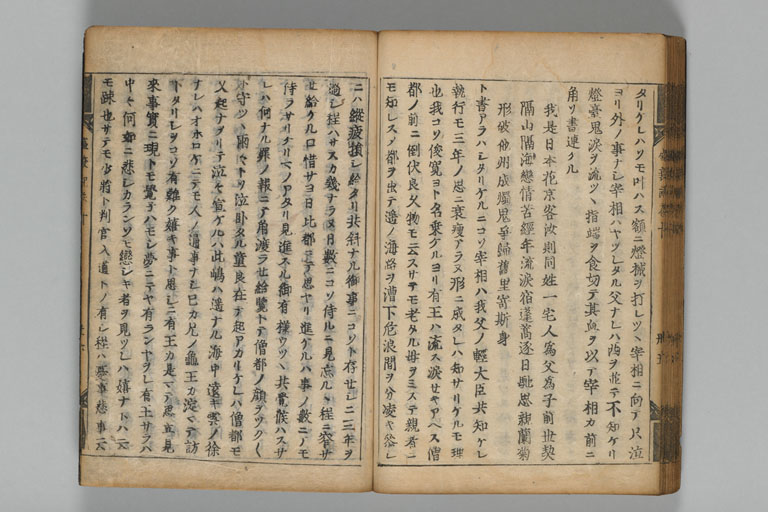 タリケレハソモ叶ハス額ニ燈械ヲ打レツヽ宰相ニ向テ只泣
ヨリ外ノ事ナシ宰相ハヤツレタル父ナレハ両ヲ並テ不知ケリ
燈臺鬼涙ヲ流ツヽ指端ヲ食切テ其血ヲ以テ宰相カ前ニ
角ソ書連タル
我是日本花京客汝則同姓一宅人為父為子前世契
隔山隔海戀情苦經年流涙宿蓬蒿逐日馳思親蘭菊
形破他州成燭鬼爭歸舊里寄斯身
ト書アラハレタリケルニコソ宰相ハ我父ノ輕大臣共知ケレ
執行モ三年ノ思ニ衰瘦アラヌ形ニ成タレハ知サリケルモ理
也我コソ俊寛ヨト名乗ケルヨリ有王ハ流ス涙セキアヘス僧
都ノ前ニ倒伏良久物モ云スサテモ老タル母ヲミステ親者ニ
モ知レスノ都ヲ出テ遥ノ海路ヲ漕下危浪間ヲ分凌キ参シ
ニハ縦疲損レ給タリ共斜ナル御事ニコソト存セシニ三年ヲ
過シ程ハサスカ幾ナラヌ日数ニコソ侍ルニ見忘ルヽ程ニ窄サ
セ給ケル口惜サヨ日比都ニテ思ヤリ進ケルハ事ノ数ニノモ
侍ラサリケリヘノアタリ見進スル御有様ウツヽ共覺候ハスサ
レハ何ナル罪ノ報ニテ角渡ラセ給覧トテ僧都ノ顔ヲツク
守ツヽ雨々トソ泣臥タル童良在テ起アカリケレハ僧都モ
又起ナヲリテ泣々宣ケルハ此嶋ハ遥ナル海中遠キ雲ノ徐
ナレハオホロケニテモ人ノ通事ナシ已カ兄ノ龜王カ淀マテ訪
トタリシヲコソ有難ク嬉キ事ト思シニ有王カ是マテ思立見
來事實ニ現トモ覺テハモシ夢ニテヤ有ランヤヲレ有王サラハ
中々何ニ悲シカランソモ戀シキ者ヲ見ツレハ嬉ナトハ云
モ疎也サテモ少将ト判官入道トノ有シ程ハ憂事悲事云